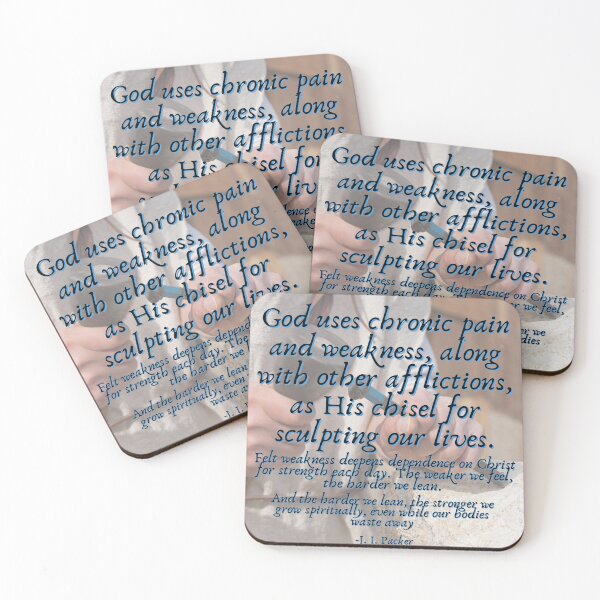 God uses chronic pain
and weakness, along
with other afflictions
as His chisel for
God uses chronic pain
and weakness, along
with other afflictions,
as His chisel for
sculpting our lives.
Felt weakness deepens dependence on Christ
for strength each day.
we feel,
we
bodies
God uses chronic pain
and weakness, along
with other afflictions,
as His chisel for
sculpting our lives.
Felt weakness deepens
for strength each day. The
the harder we
And the harder we lean,
grow spiritually, even
waste
God uses chronic pain
and weakness, along
with other afflictions,
as His chisel for
sculpting our lives.
Felt weakness deepens dependence on Christ
for strength each day. The weaker we feel,
the harder we lean.
And the harder we lean, the stronger we
grow spiritually, even while our bodies
waste away
-J. I. Packer